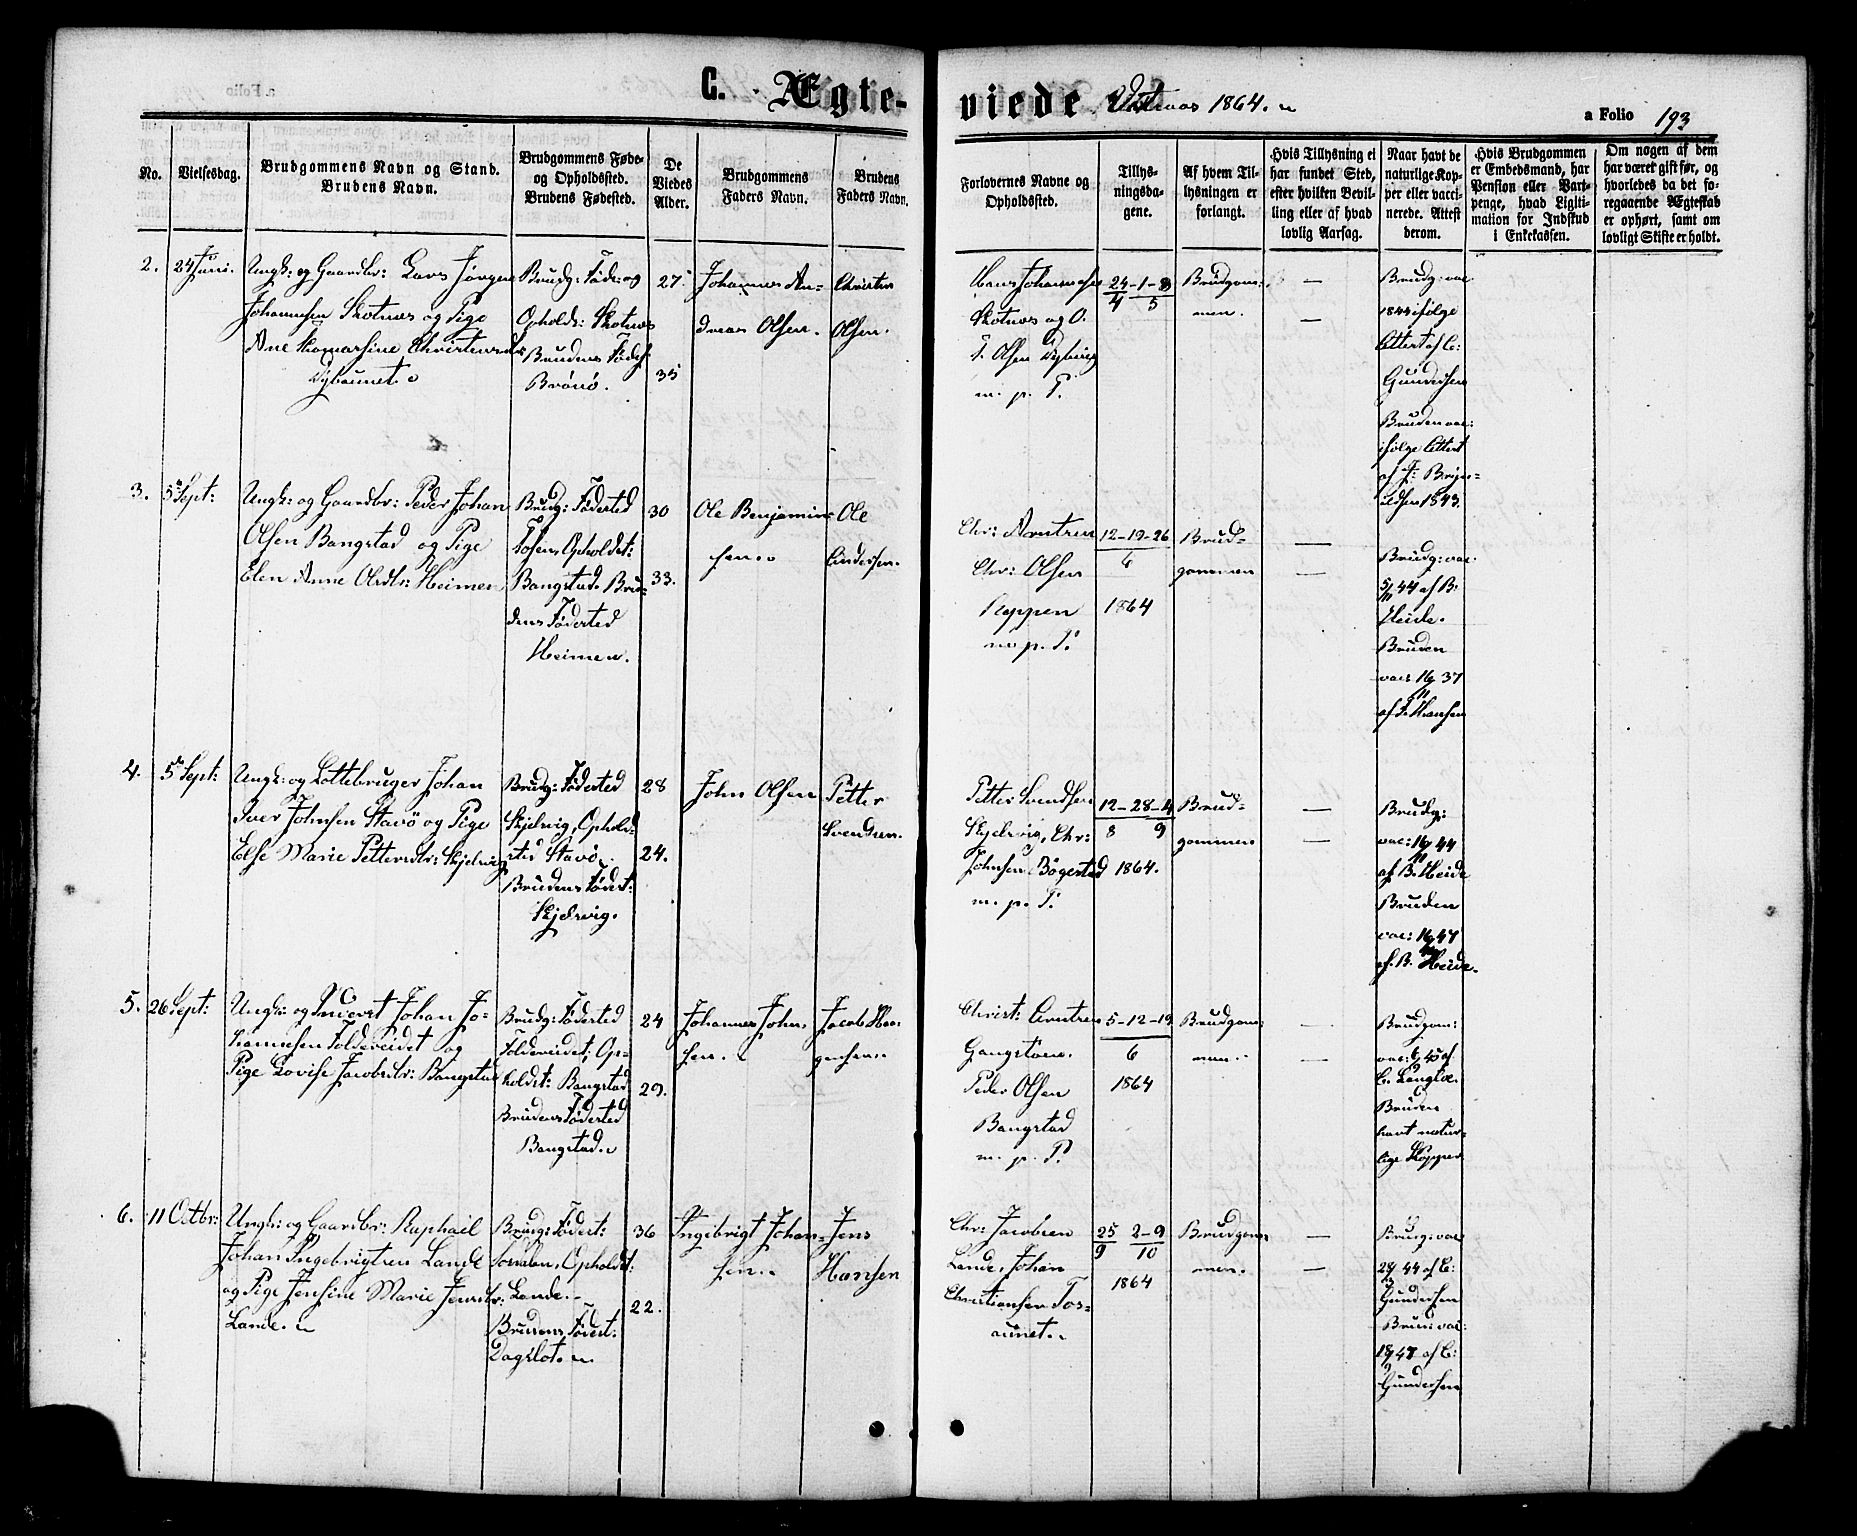 C. Ægteviede
1864.
a Folio 193
No.
Vielsesdag.
Brudgommens Navn og Stand.
Brudens Navn.
Brudgommens Føde-
og Opholdsted.
Brudens Fødested.
De
Viedes
Alder.
Brudgommens
Faders Navn.
Brudens
Faders Navn.
Forlovernes Navne og
Opholdsted.
Tillys-
ningsda-
gene.
Af hvem Til-
lysningen er
forlangt.
Hvis Tillysning ei
har fundet Sted,
efter hvilken Bevil-
ling eller af hvad
lovlig Aarsag.
Naar havt de
naturlige Kop-
per eller vacci-
nerede. Attest
derom.
Hvis Brudgommen
er Embedsmand, har
Pension eller Vart-
penge, hvad Ligiti-
mation for Indskud
i Enkekassen.
Om nogen af dem
har været gift før, og
hvorledes da det fo-
regaaende Ægteskab
er ophørt, samt om
lovligt Skifte er holdt.
2.
24 Juni.
Ungk: og Gaardbr: Lars Jørgen
Johannesen Skotnes og Pige
Ane Thomasine Christensdtr
Brudg: Føde: og
Opholds: Skotnes
Brudens Fødes:
Brønø.
27
35
Johannes An-
dreas Olsen.
Christen
Olsen.
Hans Johannesen
Skotnes og O.
T. Olsen
m. p. P.
24-1-8
4 5
Brudgom-
men.
—
—
Brudg: vac
1844 ifølge
Attest af C:
Gundersen
Bruden vac:
ifølge Attest
af J:
1843.
3.
5 Sept:
Ungk: og Gaardbr: Peder Johan
Olsen Bangstad og Pige
Elen Anne Olsdtr: Heimen
Brudg: Fødested
Fosen, Opholdst:
Bangstad. Bru-
dens Fødested
Heimen.
30
33.
Ole Benjamin-
sen..
Ole
Andersen.
Chr: Arntsen
Chr: Olsen
Reppen
m. p. P.
12-19-26
6
1864
Brud-
gommen
—
—
Brudg: vac.
5/11 44 af B:
Heide.
Bruden
vac: 16/11 37
af J. Hansen
4.
5 Sept:
Ungk: og Lottebruger Johan
Iver Johnsen Stavø og Pige
Else Marie Pettersdtr: Skjelvig
Brudg: Fødested
Skjelvig, Ophold-
sted Stavø.
Brudens Fødest:
Skjelvig.
28
24.
John Olsen
Petter
Svendsen.
Petter Svendsen
Skjelvig, Chr:
Johnsen Bøgestad
m. p. P.
12-28-4
8 9
1864.
Brud-
gommen
—
—
Brudg:
vac: 16/11 44
af B. Heide
Bruden
vac: 16 47
af. B. Heide.
5.
26 Sept:
Ungk: og Inderst Johan Jo-
hannesen Foldereidet og
Pige Lovise Jacobsdtr: Bangstad
Brudg: Fødested
Foldereidet, Op-
holdst: Bangstad
Brudens Fødested
Bangstad.
24
29.
Johannes John-
sen..
Jacob Haa-
gensen..
Christ: Arntsen
Gangstøen.
Peder Olsen
Bangstad
m. p. P.
5-12-19
6
1864
Brudgom-
men..
—
—
Brudgom:
vac: 45 af
C. Langlo.
Bruden
havt natur-
lige Kopper
6.
11 Octbr:
Ungk: og Gaardbr: Raphael
Johan Ingebrigtsen Lande
og Pige Jensine Marie Jensdtr:
Lande.
Brudg: Fødest:
Somnen, Opholdst:
Lande.
Brudens Fødest:
Dagslot.
36
22.
Ingebrigt Johan-
sen..
Jens
Hansen
Chr: Jacobsen
Lande, Johan
Christiansen Tos-
aunet.
25 2-9
9 10
1864
Brudgom-
men.
—
—
Brudg: vac
44 af C:
Gundersen
Brud: vac:
47 af C:
Gundersen